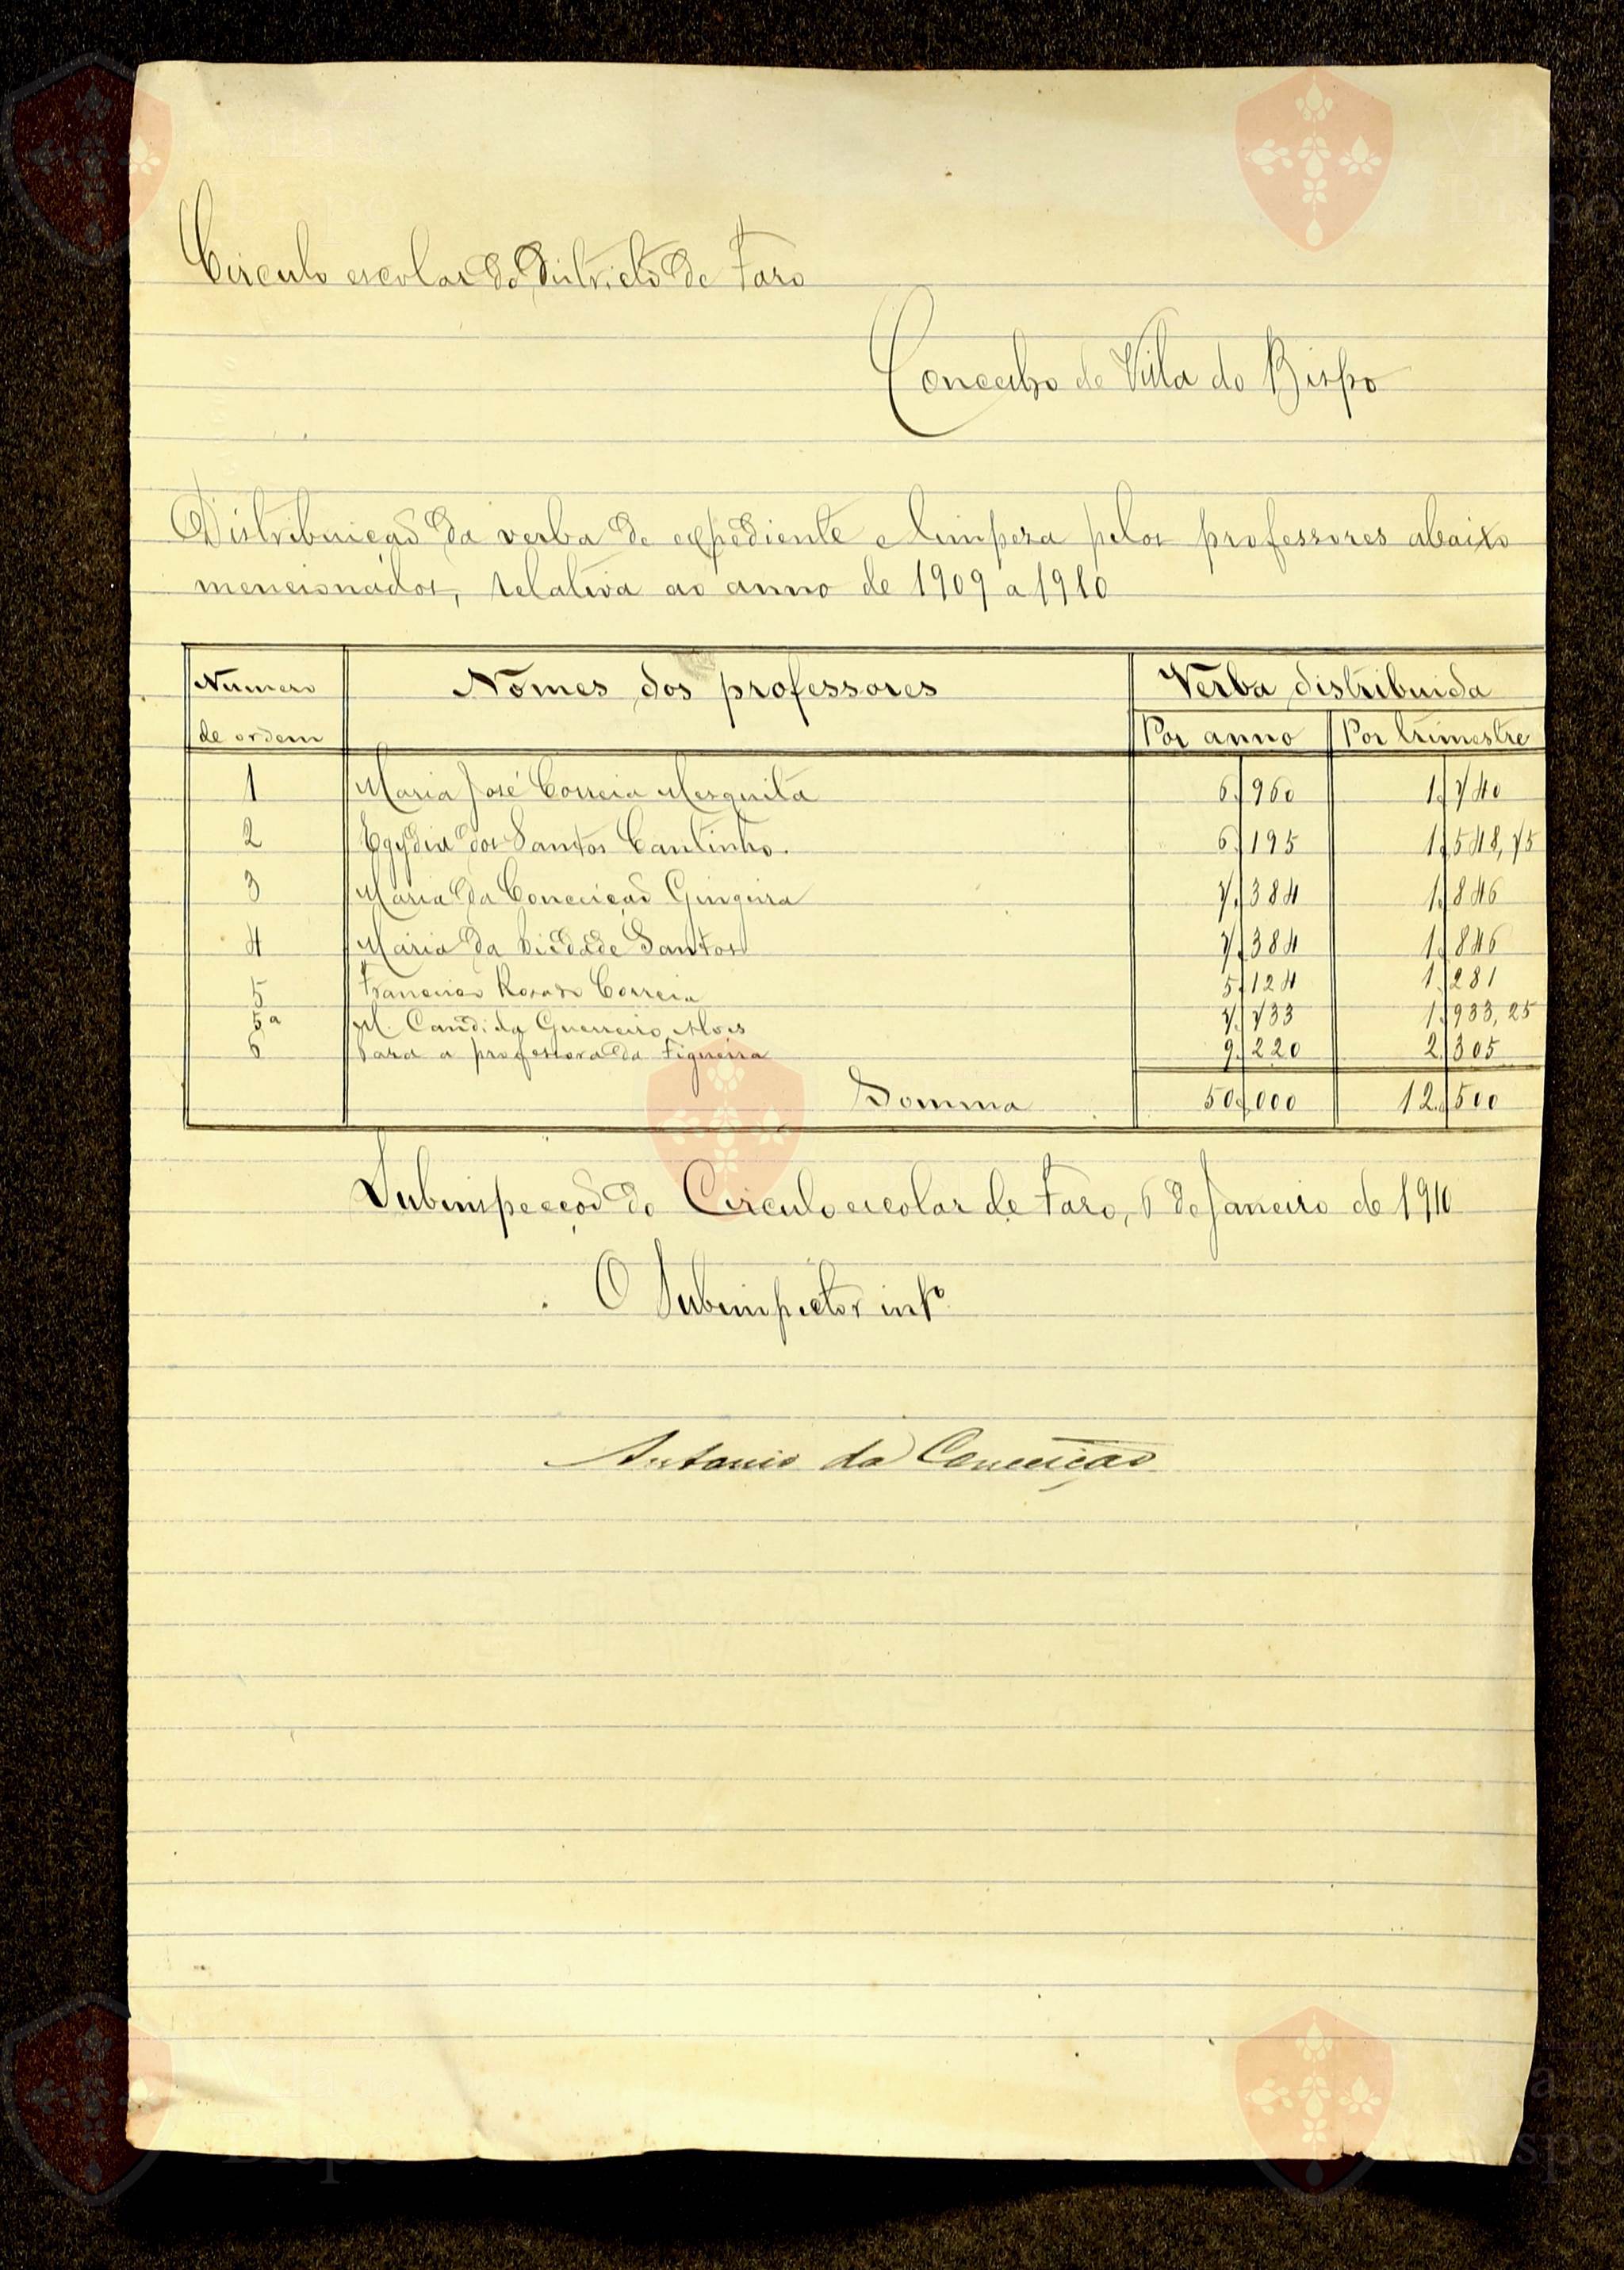 Circulo escolar do Districto de Faro
Concelho de Villa do Bispo
Distribuição da verba de expediente e limpeza pelos professores abaixo
mencionados, relativa ao anno de 1909 a 1910
Numero de ordem Nomes dos professores Verba distribuida
Por anno Por trimestre
1 Maria José Correia Mesquita 6$960 1$740
2 Egydia dos Santos Cantinho. 6$195 1$548,75
3 Maria da Conceição Gingeira 7$384 1$846
4 Maria da Piedade Santos 7$384 1$846
5 Francisco Rosado Correia 5$124 1$281
5ª M. Candida Guerreiro Alves 7$733 1$933,25
6 Para a professora da Figueira 9$220 2$305
Somma 50$000 12$500
Subinspecção do Circulo escolar de Faro, 6 de Janeiro de 1910
O Subinspector intº
Antonio da Conceição